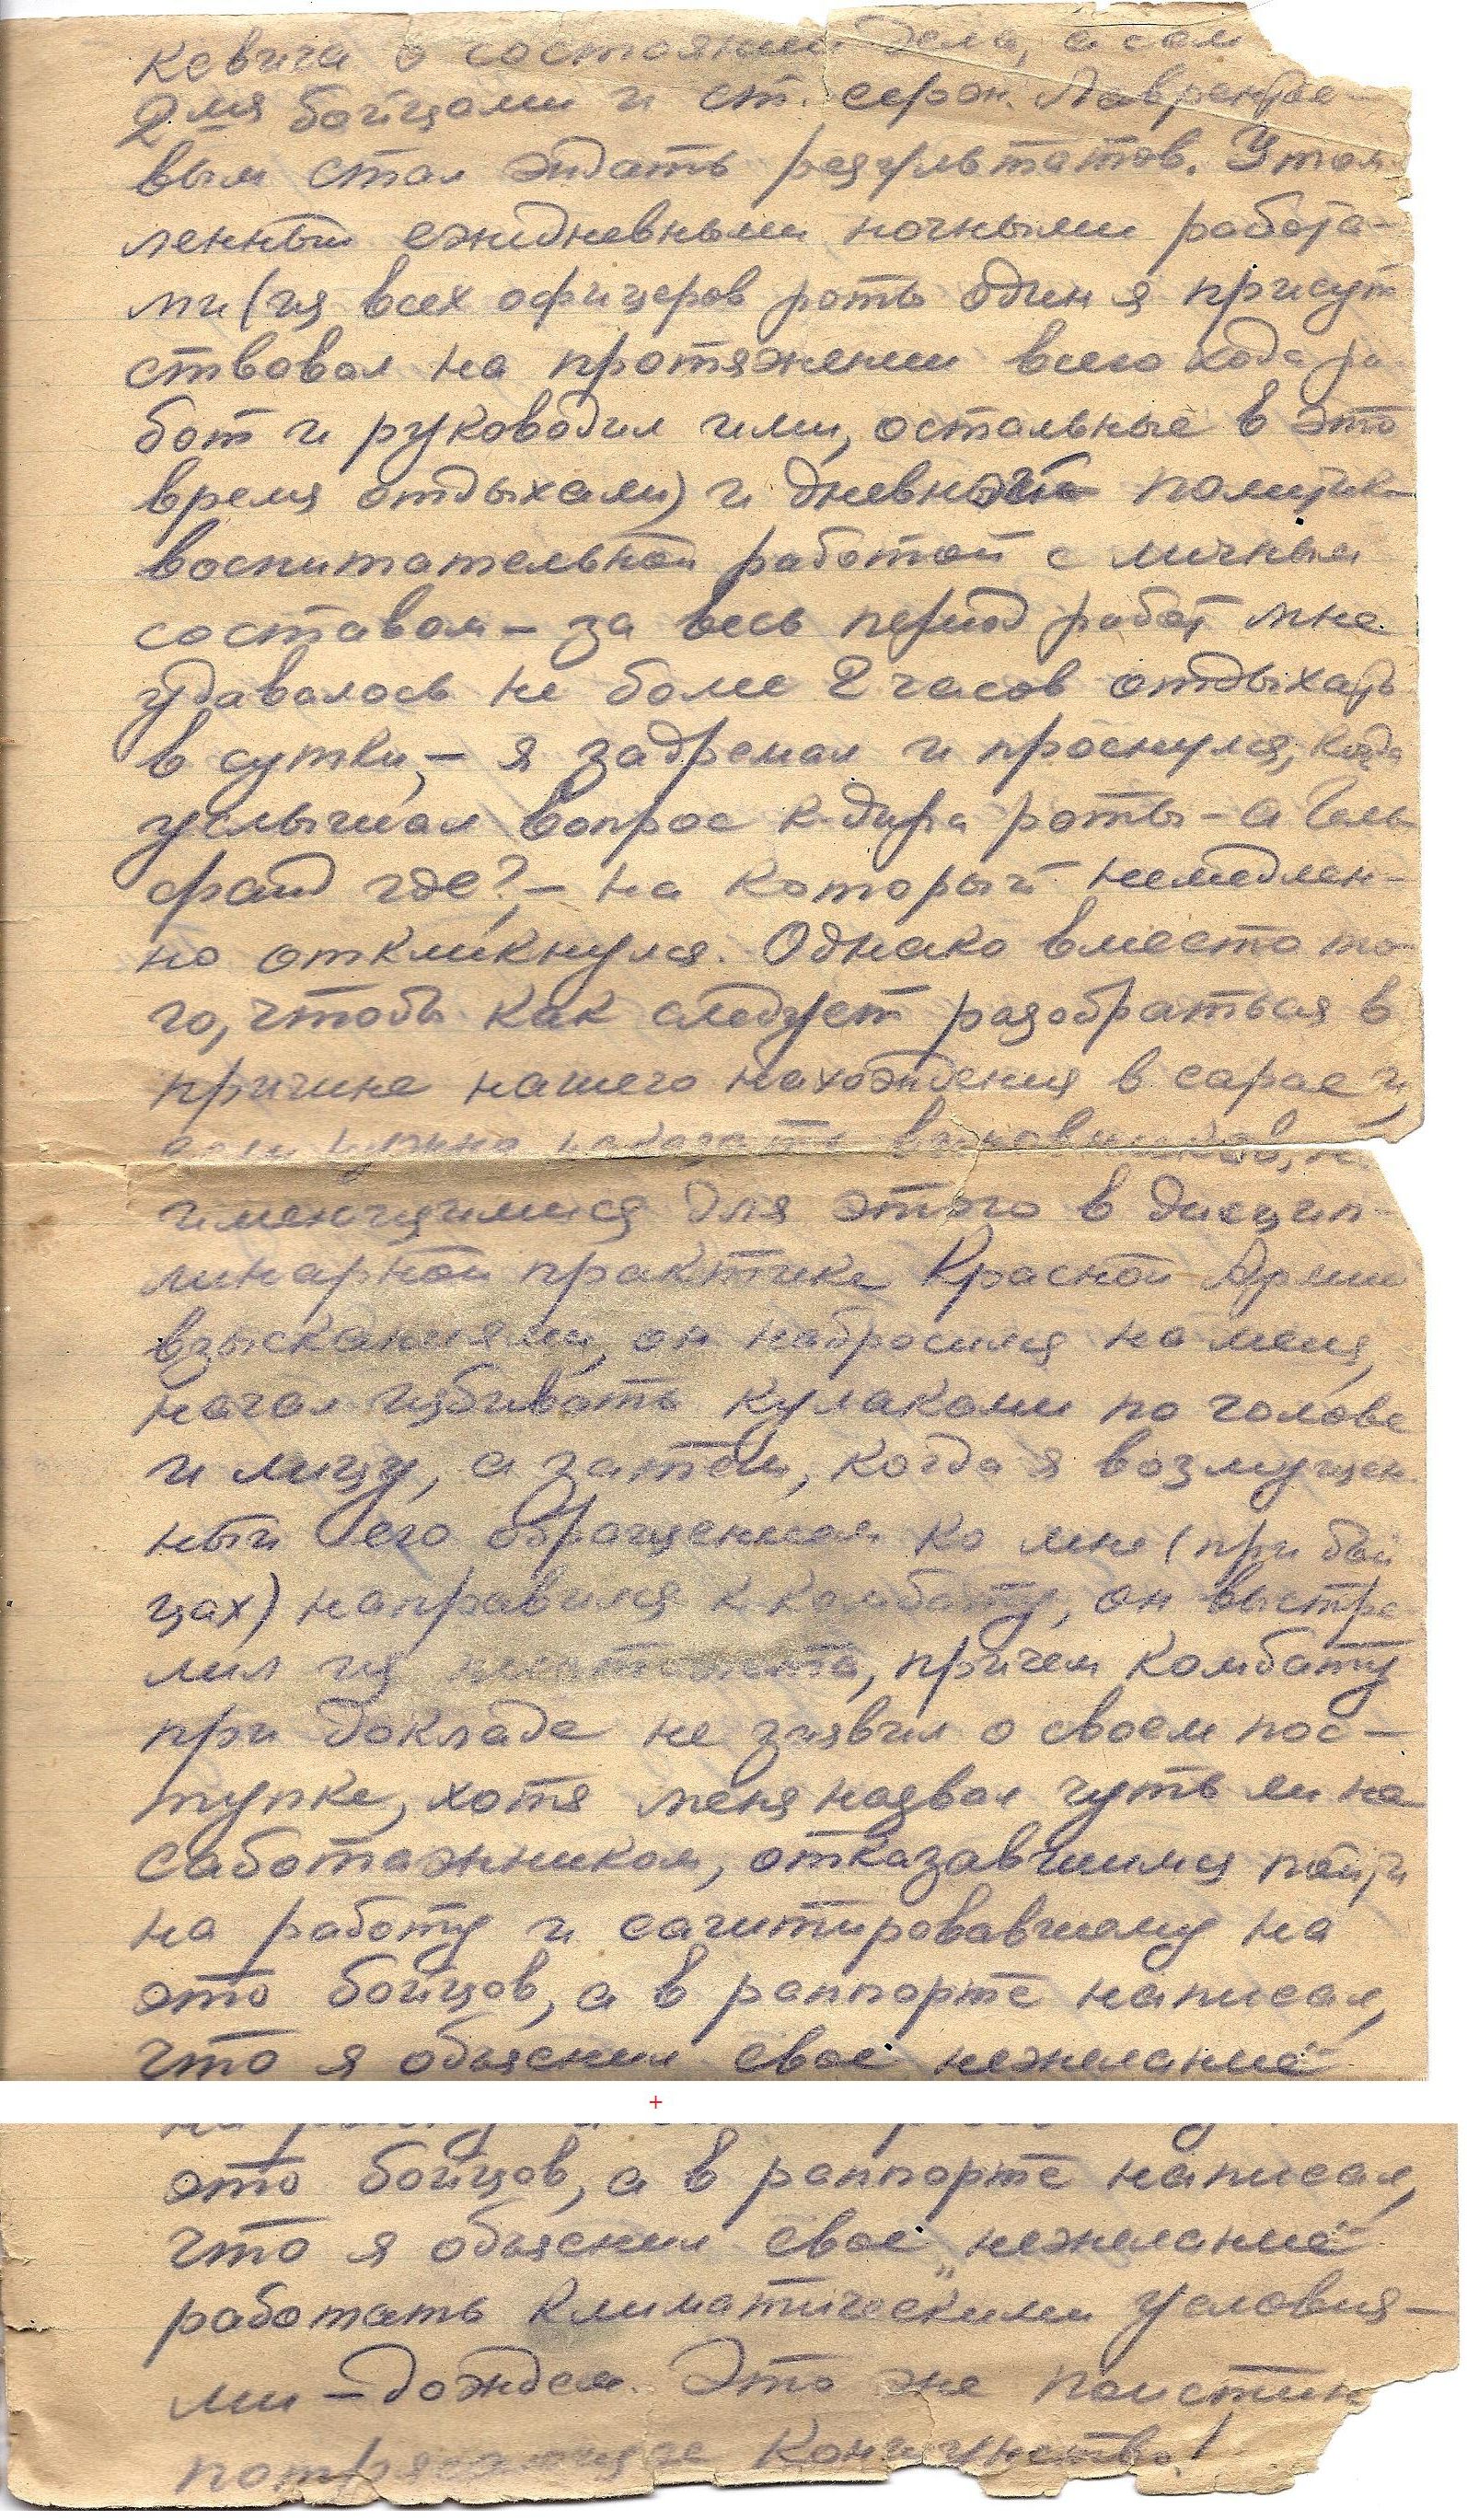 ковича о состоянии дела, а сам
2мя бойцами и ст. сержн. Лаврентье-
вым стал ждать результатов. Утом-
ленный ежедневными ночными работа-
ми (из всех офицеров роты один я присут
ствовал на протяжении всего хода ра-
бот и руководил ими, остальные в это
время отдыхали) и дневной политико-
воспитательной работой с личным
составом – за весь период работ мне
удавалось не более 2 часов отдыхать
в сутки, – я задремал и проснулся, когда
услышал вопрос к-дира роты – а Гель-
фанд где? – на который немедлен-
но откликнулся. Однако вместо то-
го, чтобы как следует разобраться в
причине нашего нахождения в сарае и,
если нужно наказать виновников,
имеющимися для этого в дисцип-
линарной практике Красной Армии
взысканиями, он набросился на меня,
начал избивать кулаками по голове
и лицу, а затем, когда я возмущен-
ный его обращением ко мне (при бой
цах) направился к комбату, он выстре-
лил из пистолета, причем комбату
при докладе не заявил о своем пос-
тупке, хотя меня назвал чуть ли не
саботажником, отказавшимся пойти
на работу и сагитировавшему на
это бойцов, а в раппорте написал,
что я объяснил свое нежелание
это бойцов, а в раппорте написал,
что я объяснил свое „нежелание"
работать климатическими условия-
ми – дождем. Это же поистине
потрясающее кощунство!